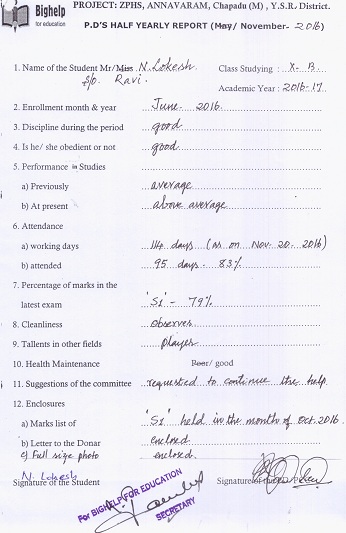 Bighelp
for education
PROJECT: ZPHS, ANNAVARAM, Chapadu (M) , Y.S.R. District.
P.D'S HALF YEARLY REPORT (May/ November- 2016)
1. Name of the Student Mr/Miss N. Lokesh Class Studying : X - B.
S/o. Ravi. Academic Year : 2016-17
2. Enrollment month & year June 2016
3. Discipline during the period good
4. Is he/ she obedient or not good
5. Performance in Studies
a) Previously average
b) At present above average
6. Attendance
a) working days 114 days (as on Nov. 20. 2016)
b) attended 95 days - 83%
7. Percentage of marks in the
latest exam 'S1' - 79%
8. Cleanliness observes
9. Tallents in other fields player
10. Health Maintenance Poor/ good
11. Suggestions of the committee requested to continue the help
12. Enclosures
a) Marks list of 'S1' held in the month of Oct. 2016.
b) Letter to the Donar enclosed
c) Full size photo enclosed.
N. Lokesh
Signature of the Student Signature of
For BIGHELP FOR EDUCATION
SECRETARY